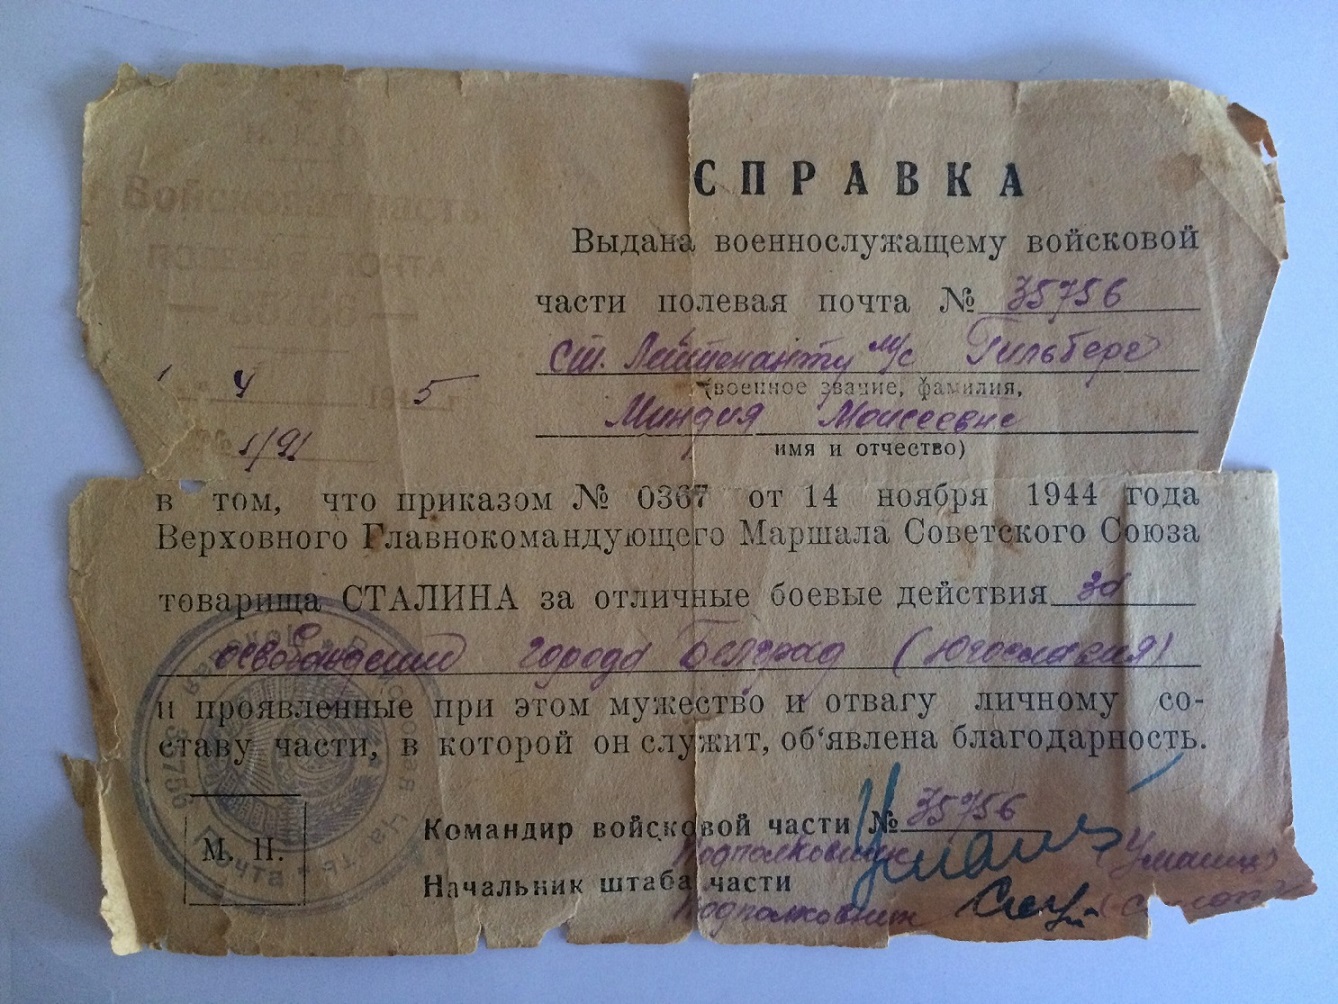 СПРАВКА
Выдана военнослужащему войсковой
части полевая почта № 35756
ст. Лейтенанту м/с Гильберг
(военное звание, фамилия,
Миндия Моисеевне
имя и отчество)
Войсковая часть
4 1945 г.
№ 1/91
в том, что приказом № 0367 от 14 ноября 1944 года
Верховного Главнокомандующего Маршала Советского Союза
товарища СТАЛИНА за отличные боевые действия за
освобождение города Белград (Югославия)
и проявленные при этом мужество и отвагу личному со-
ставу части, в которой он служит, об‘явлена благодарность.
М. П.
Командир войсковой части № 35756
Подполковник (Уманец)
Начальник штаба части
Подполковник
Полевая Почта Войсковая Часть 35756